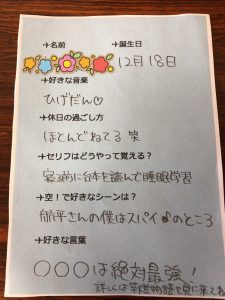 →名前 →誕生日
12月18日
→好きな音楽
ひげだん♡
→休日の過ごし方
ほとんどねてる 笑
→セリフはどうやって覚える？
寝る前に台本を読んで睡眠学習
→空！で好きなシーンは？
航平さんの僕はスパイ♪のところ
→好きな言葉
〇〇〇は絶対最強！
詳しくは 物語を見に来てね